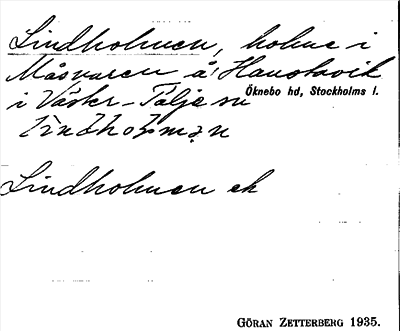 Lindholmen, holme i
Måsnaren å Hanstavik
i Väster-Tälje sn
Öknebo hd, Stockholms l.
Lindholmen ek
GÖRAN ZETTERBERG 1935.